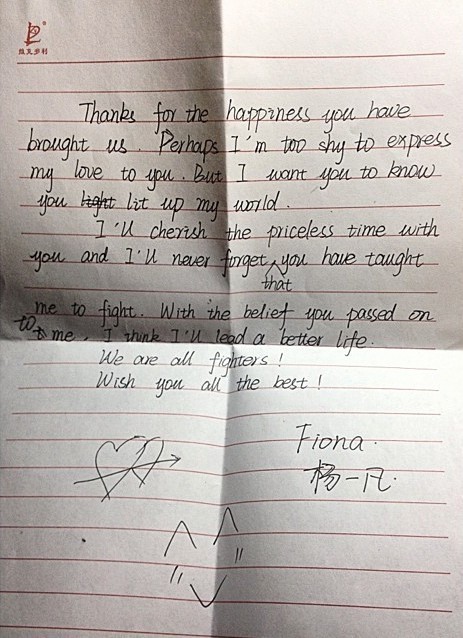 维克多利
Thanks for the happiness you have
brought us. Perhaps I'm too shy to express
my love to you. But I want you to know
you light lit up my world.
I'll cherish the priceless time with
you and I'll never forget you have taught
that
me to fight. With the belief you passed on
to me, I think I'll lead a better life.
We are all fighters!
Wish you all the best!
Fiona.
杨一凡.